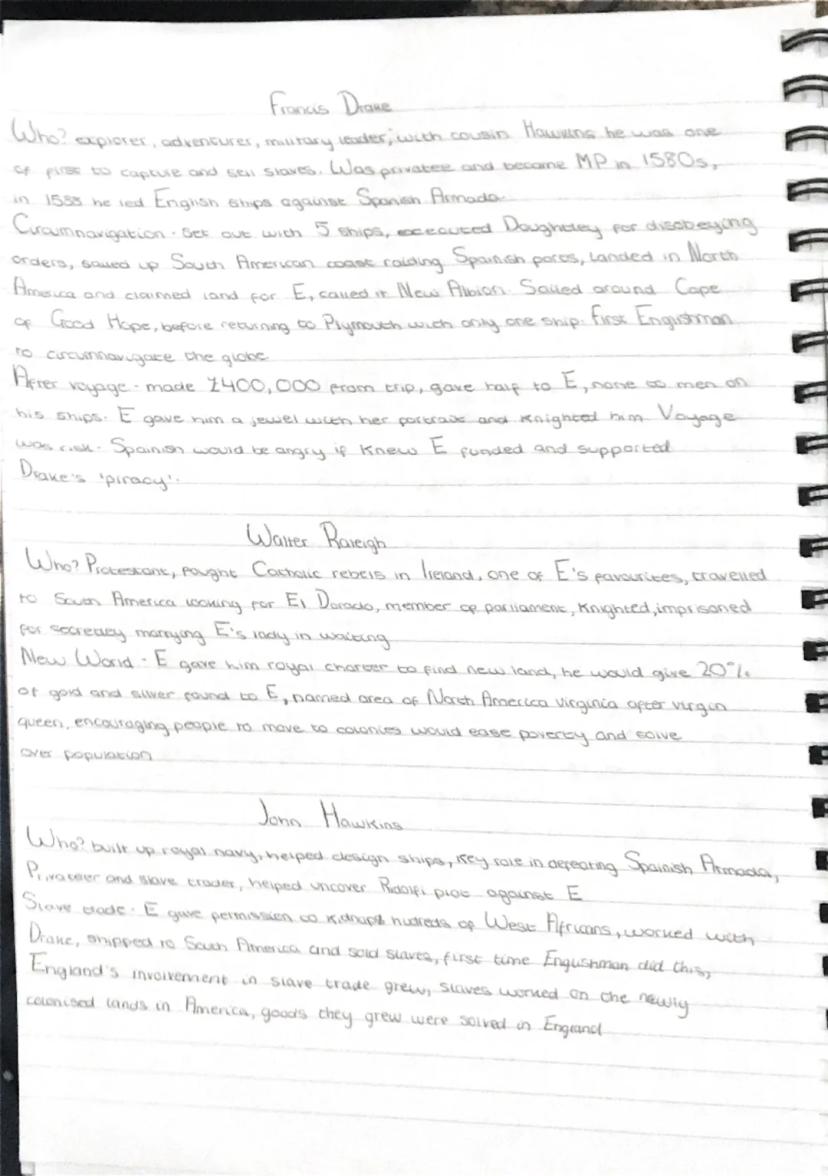 Francis Drake
Who? explorer, adventurer, military leader, with cousin Hawkins he was one
of first to capture and sell slaves. Was privateer and became MP in 1580s,
in 1588 he led English ships against Spanish Armada
Circumnavigation - Set out with 5 ships, executed Doughtey for disobeying
orders, sailed up South American coast raiding Spanish ports, landed in North
America and claimed land for E, called it New Albion. Sailed around Cape
of Good Hope, before returning to Plymouth with only one ship. First Englishman
to circumnavigate the globe
After voyage - made £400,000 from trip, gave half to E, none to men on
his ships. E gave him a jewel with her portrait and knighted him Voyage
was risk - Spanish would be angry if knew E funded and supported
Drake's 'piracy'.
Walter Raleigh
Who? Protestant, fought Catholic rebels in Ireland, one of E's favourites, travelled
to South America looking for El Dorado, member of parliament, knighted, imprisoned
for secretley marrying E's lady in waiting
New World - E gave him royal charter to find new land, he would give 20%
of gold and silver found to E, named area of North America virginia after virgin
queen, encouraging people to move to colonies would ease poverty and solve
over population
John Hawkins
Who? built up royal navy, helped design ships, key role in defeating Spanish Armada,
Privateer and slave trader, helped uncover Ridolfi plot against E
Slave trade - E gave permission to kidnap hudreds of West Africans, worked with
Drake, shipped to South America and sold slaves, first time Englishman did this,
England's involvement in slave trade grew, slaves worked on the newly
colonised lands in America, goods they grew were solved in England